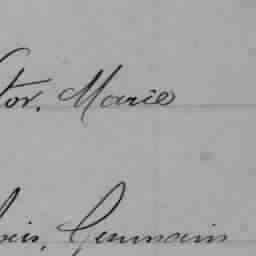 tor, Marie
ois, Germain